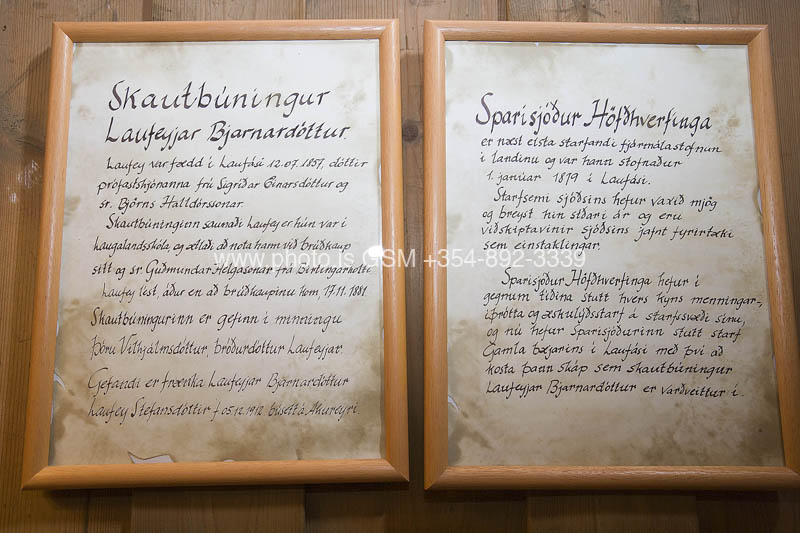 Skautbúningur
Laufeyjar Bjarnardóttur.
Laufey var fædd í Laufási 12.07.1857, dóttir
prófastshjónanna frú Sigríðar Einarsdóttur og
sr. Björns Halldórssonar.
Skautbúninginn saumaði Laufey er hún var í
Laugalandsskóla, og ætlaði að nota hann við brúðkaup
sitt og sr. Guðmundar Helgasonar frá Birtingarholti
Laufey lést, áður en að brúðkaupinu kom, 17.11.1881.
Skautbúningurinn er gefinn í minningu
Þóru Vilhjálmsdóttur, bróðurdóttur Laufeyjar.
Gefandi er frænka Laufeyjar Bjarnardóttur
Laufey Stefánsdóttir f. 05.12.1912 búsett á Akureyri.
Sparisjóður Höfðhverfinga
er næst elsta starfandi fjármálastofnun
í landinu og var hann stofnaður
1. janúar 1879 í Laufási.
Starfsemi sjóðsins hefur vaxið mjög
og breyst hin síðari ár og eru
viðskiptavinir sjóðsins jafnt fyrirtæki
sem einstaklingar.
Sparisjóður Höfðhverfinga hefur í
gegnum tíðina stutt hvers kyns menningar-,
íþrótta og æskulýðsstarf á starfssvæði sínu,
og nú hefur Sparisjóðurinn stutt starf
Gamla bæjarins í Laufási með því að
kosta þann skáp sem skautbúningur
Laufeyjar Bjarnardóttur er varðveittur í.
www.photo.is GSM +354-892-3339